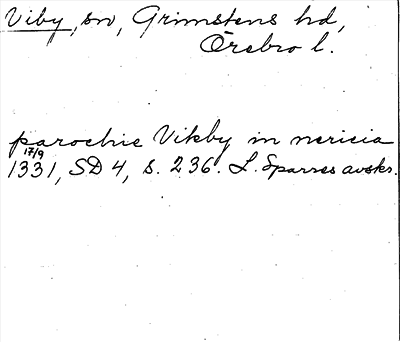 Viby, sn, Grimstens hd,
Örebro l.
parochie Vikby in nericia
17/9
1331, SD 4, s. 236. L. Sparres avskr.